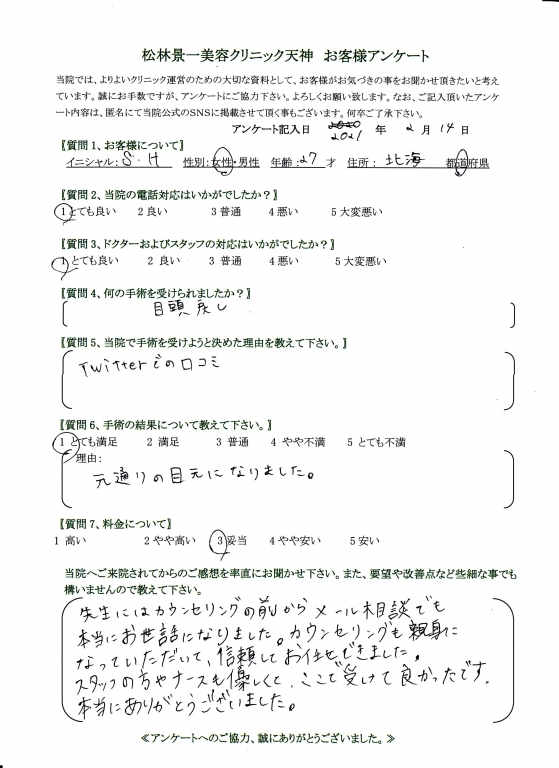 松林景一美容クリニック天神 お客様アンケート
当院では、よりよいクリニック運営のための大切な資料として、お客様がお気づきの事をお聞かせ頂きたいと考え
ています。誠にお手数ですが、アンケートにご協力下さい。よろしくお願い致します。なお、ご記入頂いたアンケ
ート内容は、匿名にて当院公式のSNSに掲載させて頂く事もございます。何卒ご了承下さい。
アンケート記入日 2021 年 2 月 14 日
【質問1、お客様について】
イニシャル:S・H 性別:女性・男性 年齢:27 才 住所: 北海 都道府県
【質問2、当院の電話対応はいかがでしたか?】
1 とても良い 2 良い 3 普通 4 悪い 5 大変悪い
【質問3、ドクターおよびスタッフの対応はいかがでしたか?】
1 とても良い 2 良い 3 普通 4 悪い 5 大変悪い
【質問4、何の手術を受けられましたか?】
目頭戻し
【質問5、当院で手術を受けようと決めた理由を教えて下さい。】
Twitterでの口コミ
【質問6、手術の結果について教えて下さい。】
1 とても満足 2 満足 3 普通 4 やや不満 5 とても不満
理由:
元通りの目元になりました。
【質問7、料金について】
1 高い 2 やや高い 3 妥当 4 やや安い 5 安い
当院へご来院されてからのご感想を率直にお聞かせ下さい。また、要望や改善点など些細な事でも
構いませんので教えて下さい。
先生にはカウンセリングの前からメール相談でも
本当にお世話になりました。カウンセリングも親身に
なっていただいて、信頼してお任せできました。
スタッフの方やナースも優しくて、ここで受けて良かったです。
本当にありがとうございました。
≪アンケートへのご協力、誠にありがとうございました。≫